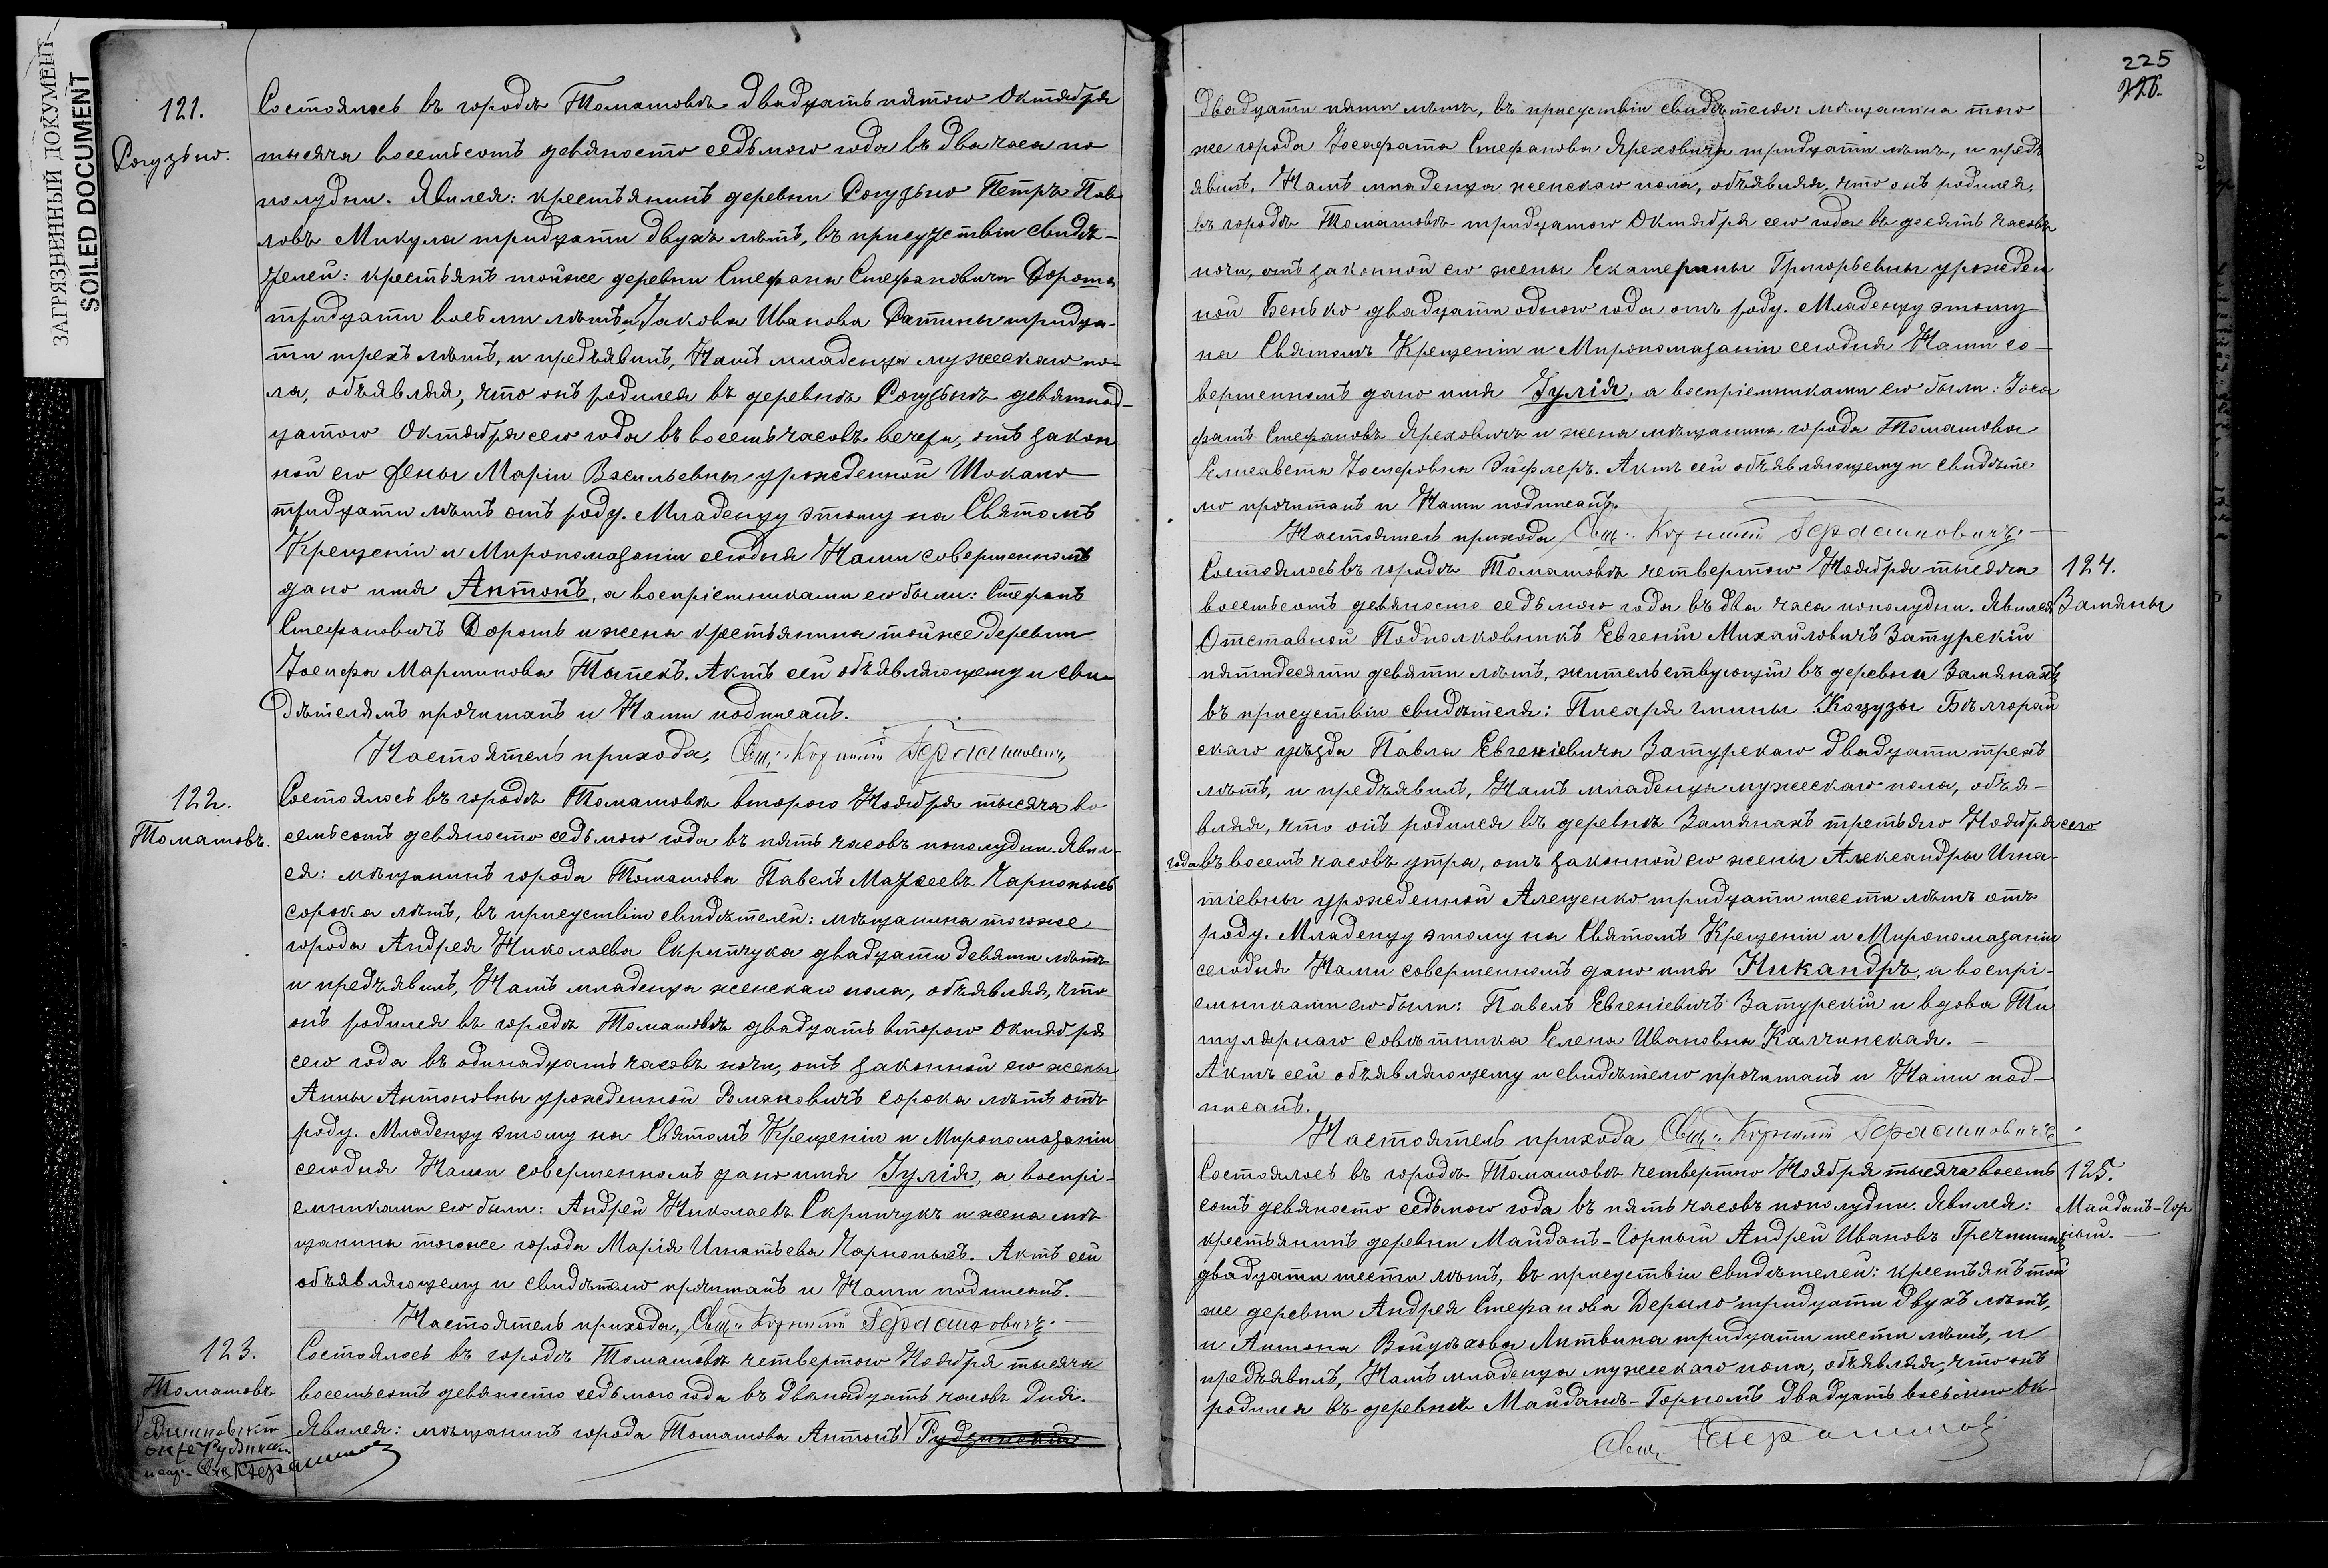 ЗАГРЯЗНЕННЫЙ ДОКУМЕНТ
SOILED DOCUMENT
121.
Рогузьно.
Состоялось въ городѣ Томашовѣ двадцать пятого Октября
тысяча восемьсотъ девяносто седьмого года въ два часа по
полудни. Явился: крестьянинъ деревни Рогузьно Петръ Пав
ловъ Микула тридцати двухъ лѣтъ, въ присутствіи свидѣ-
телей: крестьянъ тойже деревни Стефана Стефановича Дороша
тридцати восьми лѣтъ и Іакова Иванова Ратыны тридца-
ти трехъ лѣтъ, и предъявилъ, Намъ младенца мужескаго по-
ла, объявляя, что онъ родился въ деревнѣ Рогузьнѣ девятнад-
цатого Октября сего года въ восемь часовъ вечера, отъ закон
ной его жены Маріи Васильевны урожденной Шокало
тридцати лѣтъ отъ роду. Младенцу этому на Святомъ
Крещеніи и Миропомазаніи сегодня Нами совершенномъ
дано имя Антонъ, а воспріемниками его были: Стефанъ
Стефановичъ Дорошъ и жена крестьянина тойже деревни
Іосифа Мартинова Тытекъ. Актъ сей объявляющему и сви-
дѣтелямъ прочитанъ и Нами подписанъ.
Настоятель прихода, Свщ. Корнилій Герасимовичъ
122.
Томашовъ.
Состоялось въ городѣ Томашовѣ второго Ноября тысяча во
семьсотъ девяносто седьмого года въ пять часовъ пополудни. Явил-
ся: мѣщанинъ города Томашова Павелъ Матѳеевъ Чарнопысь
сорока лѣтъ, въ присуствіи свидѣтелей: мѣщанина тогоже
города Андрея Николаева Скрипчука двадцати девяти лѣтъ
и предъявилъ, Намъ младенца женскаго пола, объявляя, что
онъ родился въ городѣ Томашовѣ двадцать второго Октября
сего года въ одинадцать часовъ ночи, отъ законной его жены
Анны Антоновны урожденной Романовичъ сорока лѣтъ отъ
роду. Младенцу этому на Святомъ Крещеніи и Миропомазаніи
сегодня Нами совершенномъ дано имя Іулія, а воспрі-
емниками его были: Андрей Николаевъ Скрипчукъ и жена мѣ
щанина тогоже города Марія Игнатьева Чарнопысъ. Актъ сей
объявляющему и свидѣтелю прочитанъ и Нами подписанъ.
Настоятель прихода, Свщ. Корнилій Герасимовичъ.
123.
Томашовъ
Состоялось въ городѣ Томашовѣ четвертого Ноября тысяча
восемьсотъ девяносто седьмого года въ двѣнадцать часовъ дня.
Явился: мѣщанинъ города Томашова Антонъ Рудзинскій
225
226.
двадцати пяти лѣтъ, въ присуствіи свидѣтеля: мѣщанина того
же города Іосафата Стефанова Яреховича тридцати лѣтъ, и предъ
явилъ, Намъ младенца женскаго пола, объявляя, что онъ родился,
въ городѣ Томашовѣ тридцатого Октября сего года въ десять часовъ
ночи, отъ законной его жены Екатерины Григорьевны урожден
ной Бенько двадцати одного года отъ роду. Младенцу этому
на Святомъ Крещеніи и Миропомазаніи сегодня Нами со-
вершенномъ дано имя Іулія, а воспріемниками его были: Іоса
фатъ Стефановъ Яреховичъ и жена мѣщанина города Томашова
Елисавета Іосифовна Зифлеръ. Актъ сей объявляющему и свидѣте
лю прочитанъ и Нами подписанъ.
Настоятель прихода Свщ. Корнилій Герасимовичъ.
124.
Замяны
Состоялось въ городѣ Томашовѣ четвертого Ноября тысяча
восемьсотъ девяносто седьмого года въ два часа пополудни. Явился
Отставной Подполковникъ Евгеній Михайловичъ Затурскій
пятидесяти девяти лѣтъ, жительствующій въ деревни Замянахъ
въ присуствіи свидѣтеля: Писаря гмины Коцузы Бѣлгорай
скаго уѣзда Павла Евгеніевича Затурскаго двадцати трехъ
лѣтъ, и предъявилъ, Намъ младенца мужескаго пола, объя-
вляя, что онъ родился въ деревнѣ Замянахъ третьяго Ноября сего
года въ восемь часовъ утра, отъ законной его жены Александры Игна-
тіевны урожденной Алещенко тридцати шести лѣтъ отъ
роду. Младенцу этому на Святомъ Крещеніи и Миропомазаніи
сегодня Нами совершенномъ дано имя Никандръ, а воспрі-
емниками его были: Павелъ Евгеніевичъ Затурскій и вдова Ти
тулярнаго совѣтника Елена Ивановна Калчинская.
Актъ сей объявляющему и свидѣтелю прочитанъ и Нами под-
писанъ.
Настоятель прихода Свщ. Корнилій Герасимовичъ
125.
Майданъ-Гор
ный.
Состоялось въ городѣ Томашовѣ четвертого Ноября тысяча восемь
сотъ девяносто седьмого года въ пять часовъ пополудни. Явился:
крестьянинъ деревни Майданъ-Горный Андрей Ивановъ Гречишинъ
двадцати шести лѣтъ, въ присуствіи свидѣтелей: крестьянъ той
же деревни Андрея Стефанова Дерыло тридцати двухъ лѣтъ,
и Антона Войцѣхова Литвина тридцати шести лѣтъ, и
предъявилъ, Намъ младенца мужескаго пола, объявляя, что онъ
родился въ деревнѣ Майданѣ-Горномъ двадцать восьмого Ок-
Свщ. КГерасимов